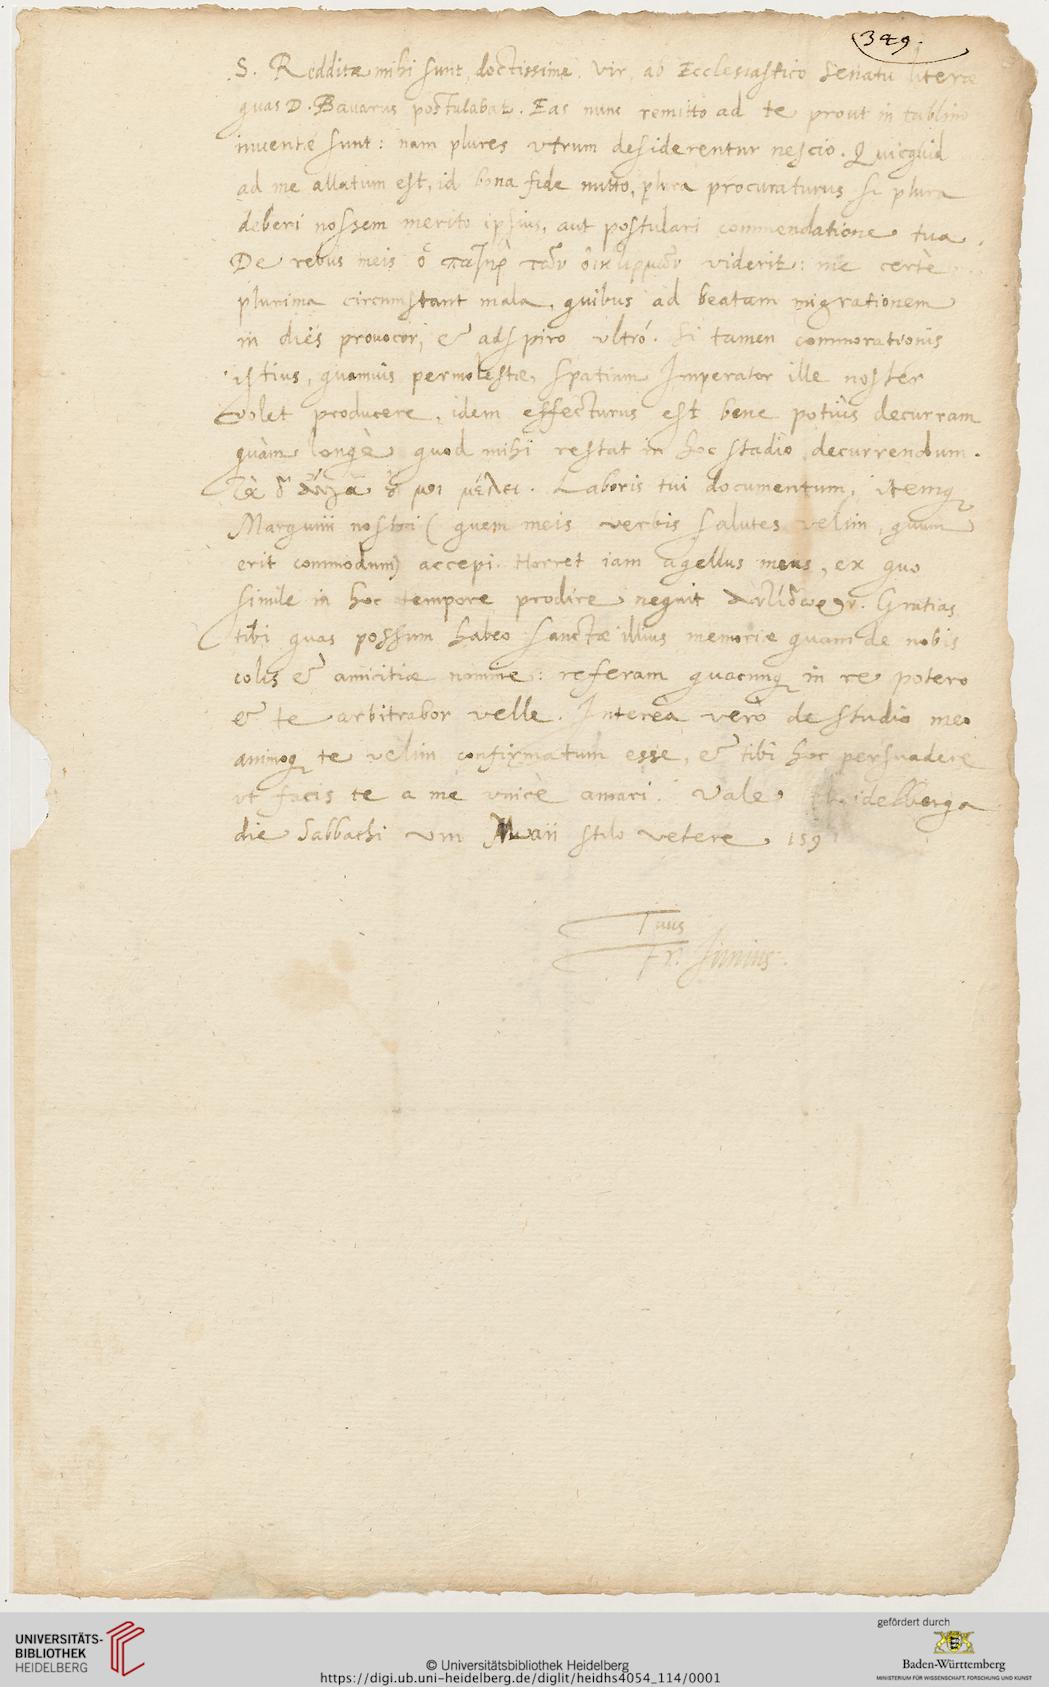 349.
S. Redditæ mihi sunt, doctissime vir, ab Ecclesiastico Senatu literæ
quas D. Bavarus postulabat. Eas nunc remitto ad te prout in tablino
inuentę sunt: nam plures vtrum desiderentur nescio. Quicquid
ad me allatum est, id bona fide mitto, plura procuraturus si plura
deberi nossem merito ipsius, aut postulari commendatione tua.
De rebus meis ὁ πατὴρ τῶν οἰκτιρμῶν viderit: me certè
plurima circumstant mala, quibus ad beatam migrationem
in dies prouocor, & adspiro vltró. Si tamen commorationis
istius, quamuis permolestæ, spatium Imperator ille noster
volet producere, idem effecturus est bene potiùs decurram
quàm longè quod mihi restat in hoc stadio decurrendum.
Τὰ δ' ἄλλα οὔ μοι μέλει. Laboris tui documentum, itemq
Marquini nostri (quem meis verbis salutes velim, quum
erit commodum) accepi. Horret iam agellus meus, ex quo
simile in hoc tempore prodire nequit ἀντίδωρον. Gratias
tibi quas possum habeo sanctæ illius memoriæ quam de nobis
colis & amicitiæ nomine: referam quacunq in re potero
& te arbitrabor velle. Intereà verò de studio meo
animoq te velim confirmatum esse, & tibi hoc persuadere
vt facis te a me vnicè amari. Vale Heidelberga
die Sabbathi VIII Maii stilo vetere 159
Tuus
Fr. Junius.
UNIVERSITÄTS-
BIBLIOTHEK
HEIDELBERG
© Universitätsbibliothek Heidelberg
https://digi.ub.uni-heidelberg.de/diglit/heidhs4054_114/0001
gefördert durch
Baden-Württemberg
MINISTERIUM FÜR WISSENSCHAFT, FORSCHUNG UND KUNST